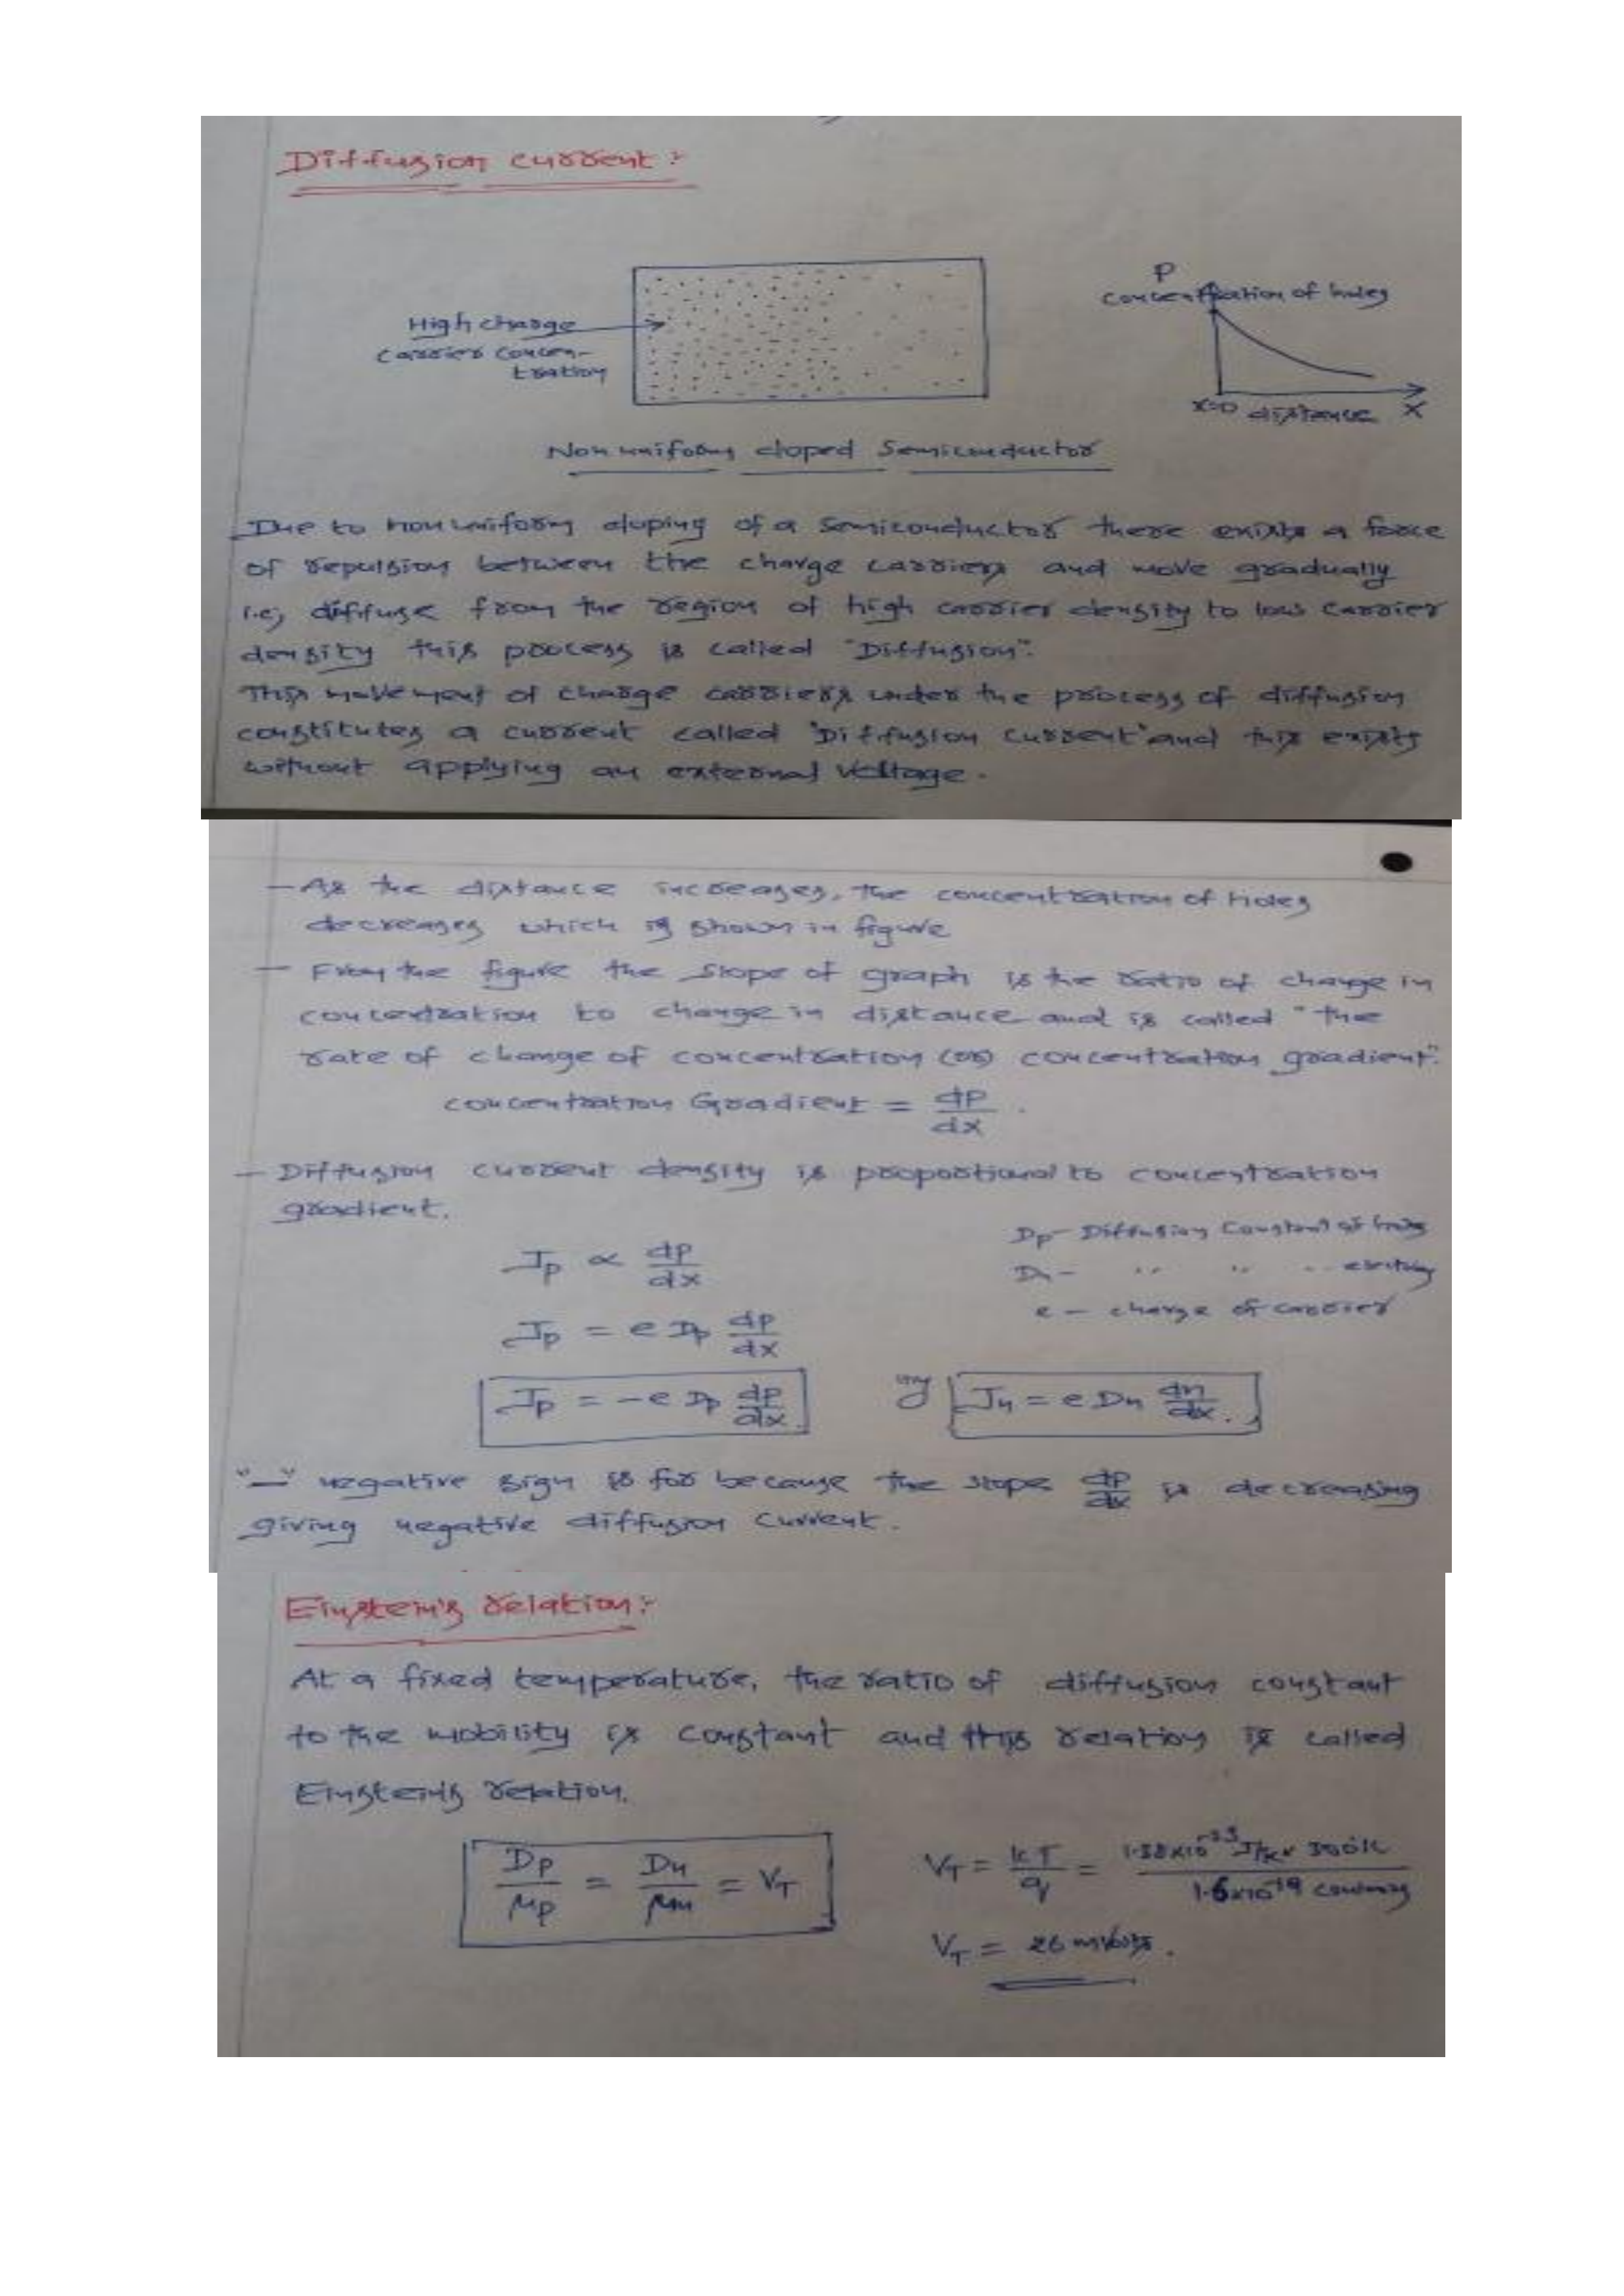 Diffusion current :-
P
concentration of holes
High charge
carrier concen-
tration
x=0 distance X
Non uniform doped Semiconductor
Due to non uniform doping of a semiconductor there exists a force
of repulsion between the charge carriers and move gradually
i.e, diffuse from the region of high carrier density to low carrier
density this process is called "Diffusion".
This movement of charge carriers under the process of diffusion
constitutes a current called "Diffusion current" and this exists
without applying an external voltage.
- As the distance increases, the concentration of holes
decreases which is shown in figure
- From the figure the slope of graph is the ratio of change in
concentration to change in distance and is called "the
rate of change of concentration (or) concentration gradient".
concentration Gradient = dp/dx .
- Diffusion current density is proportional to concentration
gradient.
Dp - Diffusion Constant of holes
Jp ∝ dp/dx
Dn - " " " electrons
e - charge of carrier
Jp = e Dp dp/dx
Jp = -e Dp dp/dx. lly Jn = e Dn dn/dx.
"-" negative sign is for because the slope dp/dx is decreasing
giving negative diffusion current.
Einstein's relation:-
At a fixed temperature, the ratio of diffusion constant
to the mobility is constant and this relation is called
Einstein's relation.
Dp/μp = Dn/μn = VT
VT = kT/q = 1.38×10^-23 J/K × 300K / 1.6×10^-19 coulombs
VT = 26 mvolts.